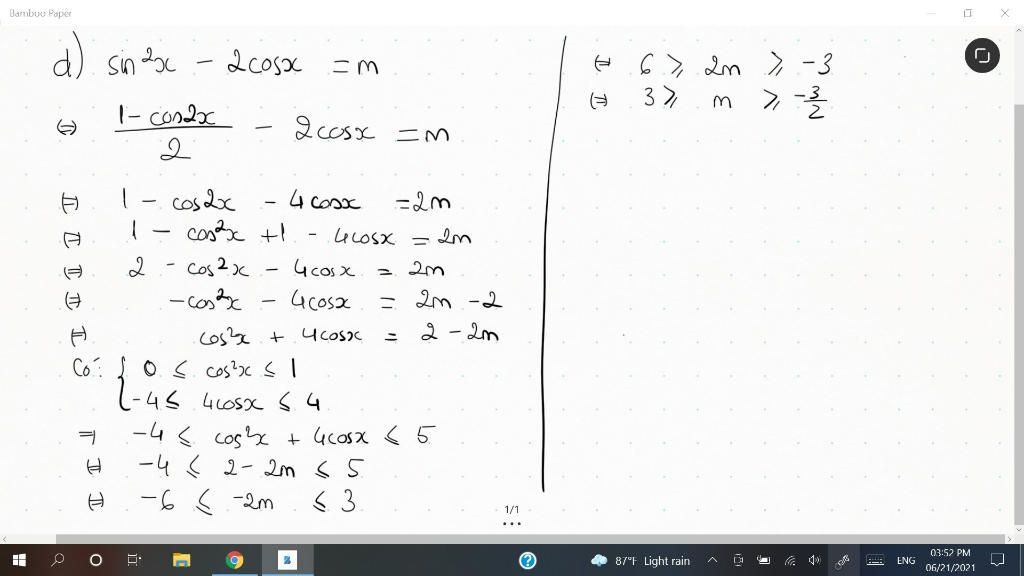 Bamboo Paper
d) sin²x - 2cosx = m
⇔ (1 - cos2x)/2 - 2cosx = m
⇔ 1 - cos2x - 4cosx = 2m
⇔ 1 - cos²x + 1 - 4cosx = 2m
⇔ 2 - cos²x - 4cosx = 2m
⇔ -cos²x - 4cosx = 2m - 2
⇔ cos²x + 4cosx = 2 - 2m
Có: { 0 ⩽ cos²x ⩽ 1
-4 ⩽ 4cosx ⩽ 4
⇒ -4 ⩽ cos²x + 4cosx ⩽ 5
⇔ -4 ⩽ 2 - 2m ⩽ 5
⇔ -6 ⩽ -2m ⩽ 3
⇔ 6 ⩾ 2m ⩾ -3
⇔ 3 ⩾ m ⩾ -3/2
1/1
87°F Light rain
ENG
03:52 PM
06/21/2021